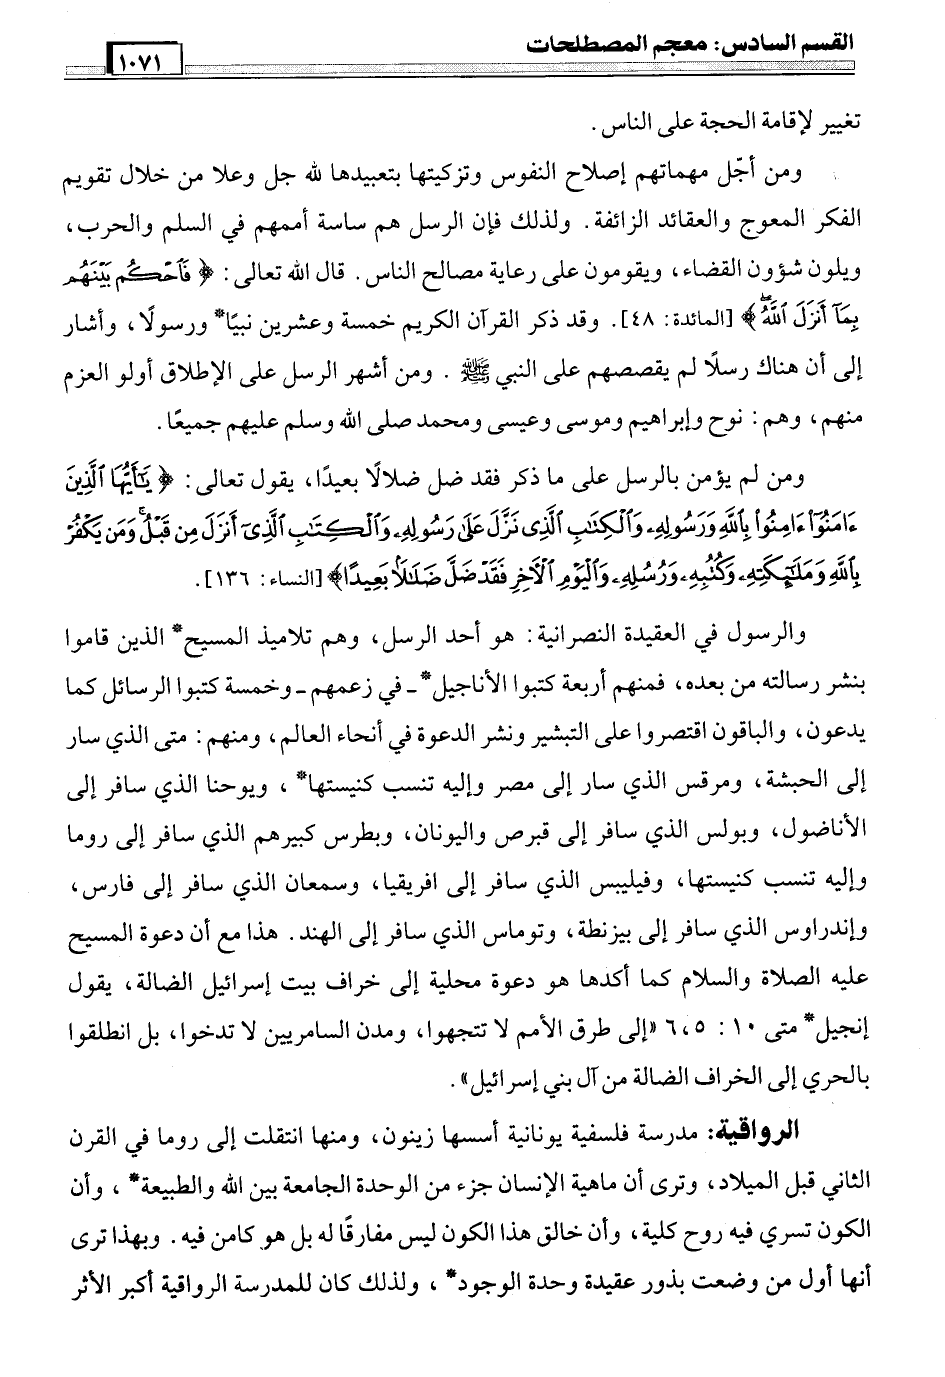 القسم السادس: معجم المصطلحات
١٠٧١
تغيير لإقامة الحجة على الناس.
ومن أجّل مهماتهم إصلاح النفوس وتزكيتها بتعبيدها لله جل وعلا من خلال تقويم
الفكر المعوج والعقائد الزائفة. ولذلك فإن الرسل هم ساسة أممهم في السلم والحرب،
ويلون شؤون القضاء، ويقومون على رعاية مصالح الناس. قال الله تعالى: ﴿ فَٱحْكُم بَيْنَهُم
بِمَآ أَنزَلَ ٱللَّهُ ۖ﴾ [المائدة: ٤٨]. وقد ذكر القرآن الكريم خمسة وعشرين نبيًا* ورسولًا، وأشار
إلى أن هناك رسلًا لم يقصصهم على النبي ﷺ . ومن أشهر الرسل على الإطلاق أولو العزم
منهم، وهم: نوح وإبراهيم وموسى وعيسى ومحمد صلى الله وسلم عليهم جميعًا.
ومن لم يؤمن بالرسل على ما ذكر فقد ضل ضلالًا بعيدًا، يقول تعالى: ﴿ يَٰٓأَيُّهَا ٱلَّذِينَ
ءَامَنُوٓا۟ ءَامِنُوا۟ بِٱللَّهِ وَرَسُولِهِۦ وَٱلْكِتَٰبِ ٱلَّذِى نَزَّلَ عَلَىٰ رَسُولِهِۦ وَٱلْكِتَٰبِ ٱلَّذِىٓ أَنزَلَ مِن قَبْلُ ۚ وَمَن يَكْفُرْ
بِٱللَّهِ وَمَلَٰٓئِكَتِهِۦ وَكُتُبِهِۦ وَرُسُلِهِۦ وَٱلْيَوْمِ ٱلْءَاخِرِ فَقَدْ ضَلَّ ضَلَٰلًۢا بَعِيدًا﴾ [النساء: ١٣٦].
والرسول في العقيدة النصرانية: هو أحد الرسل، وهم تلاميذ المسيح* الذين قاموا
بنشر رسالته من بعده، فمنهم أربعة كتبوا الأناجيل* ـ في زعمهم ـ وخمسة كتبوا الرسائل كما
يدعون، والباقون اقتصروا على التبشير ونشر الدعوة في أنحاء العالم، ومنهم: متى الذي سار
إلى الحبشة، ومرقس الذي سار إلى مصر وإليه تنسب كنيستها*، ويوحنا الذي سافر إلى
الأناضول، وبولس الذي سافر إلى قبرص واليونان، وبطرس كبيرهم الذي سافر إلى روما
وإليه تنسب كنيستها، وفيليبس الذي سافر إلى افريقيا، وسمعان الذي سافر إلى فارس،
وإندراوس الذي سافر إلى بيزنطة، وتوماس الذي سافر إلى الهند. هذا مع أن دعوة المسيح
عليه الصلاة والسلام كما أكدها هو دعوة محلية إلى خراف بيت إسرائيل الضالة، يقول
إنجيل* متى ١٠: ٥، ٦ «إلى طرق الأمم لا تتجهوا، ومدن السامريين لا تدخوا، بل انطلقوا
بالحري إلى الخراف الضالة من آل بني إسرائيل».
الرواقية: مدرسة فلسفية يونانية أسسها زينون، ومنها انتقلت إلى روما في القرن
الثاني قبل الميلاد، وترى أن ماهية الإنسان جزء من الوحدة الجامعة بين الله والطبيعة*، وأن
الكون تسري فيه روح كلية، وأن خالق هذا الكون ليس مفارقًا له بل هو كامن فيه. وبهذا ترى
أنها أول من وضعت بذور عقيدة وحدة الوجود*، ولذلك كان للمدرسة الرواقية أكبر الأثر